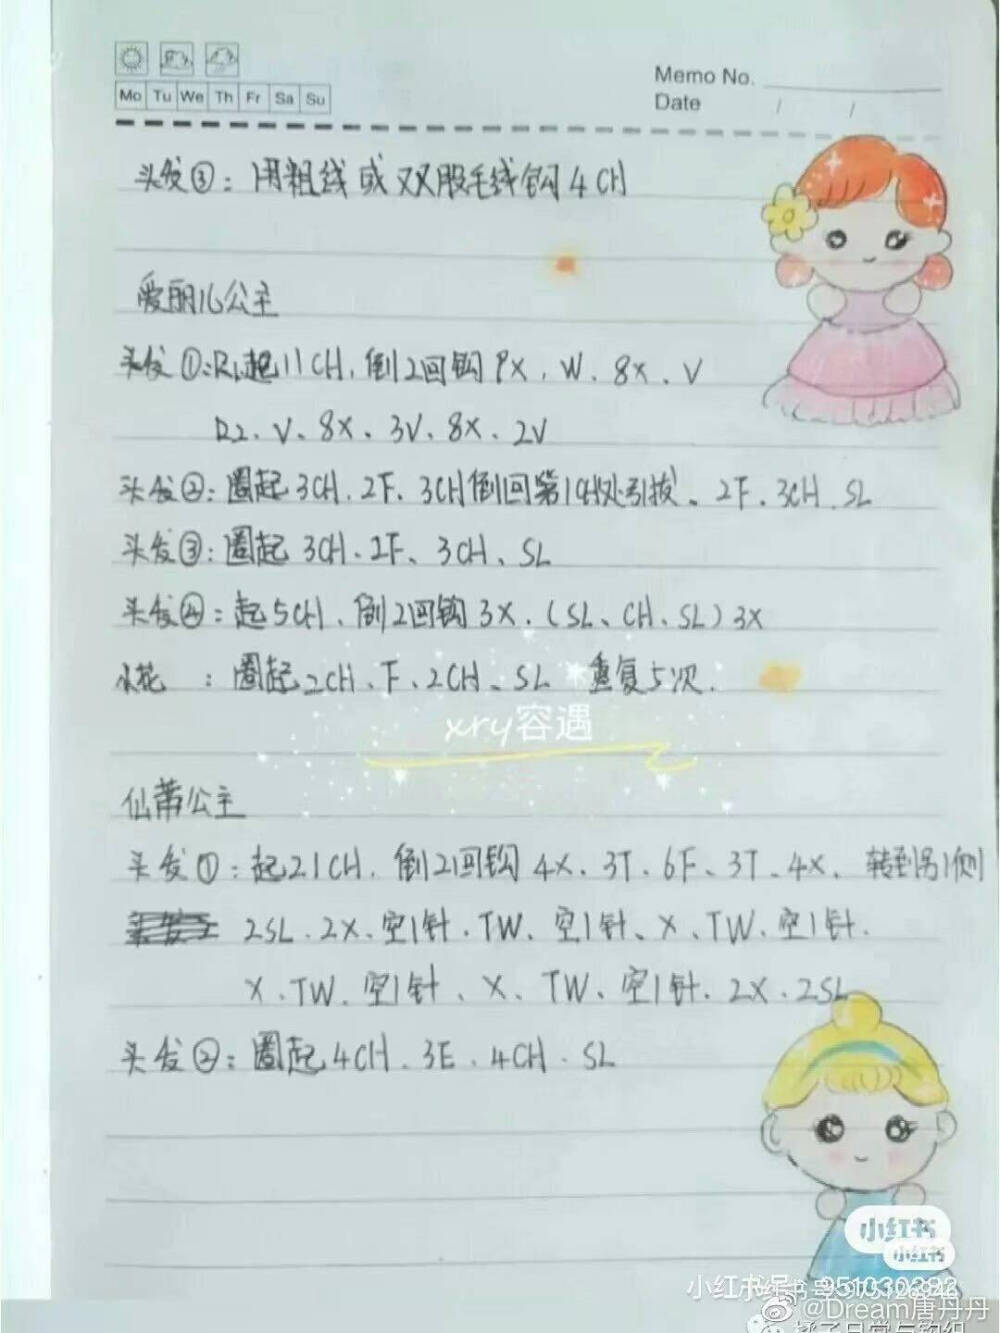 Memo No.
Mo Tu We Th Fr Sa Su
Date / /
头发③：用粗线或双股毛线钩4CH
爱丽儿公主
头发①：R1起11CH，倒2回钩9X、W、8X、V
R2、V、8X、3V、8X、2V
头发②：圈起3CH、2F、3CH倒回第1CH处引拔、2F、3CH、SL
头发③：圈起3CH、2F、3CH、SL
头发④：起5CH、倒2回钩3X、(SL、CH、SL)3X
小花：圈起2CH、F、2CH、SL 重复5次.
xry容遇
仙蒂公主
头发①：起21CH，倒2回钩4X、3T、6F、3T、4X、转到另1侧
2SL、2X、空1针、TW、空1针、X、TW、空1针.
X、TW、空1针、X、TW、空1针、2X、2SL
头发②：圈起4CH、3E、4CH、SL
小红书
小红书
小红书号：951030292
@Dream唐丹丹